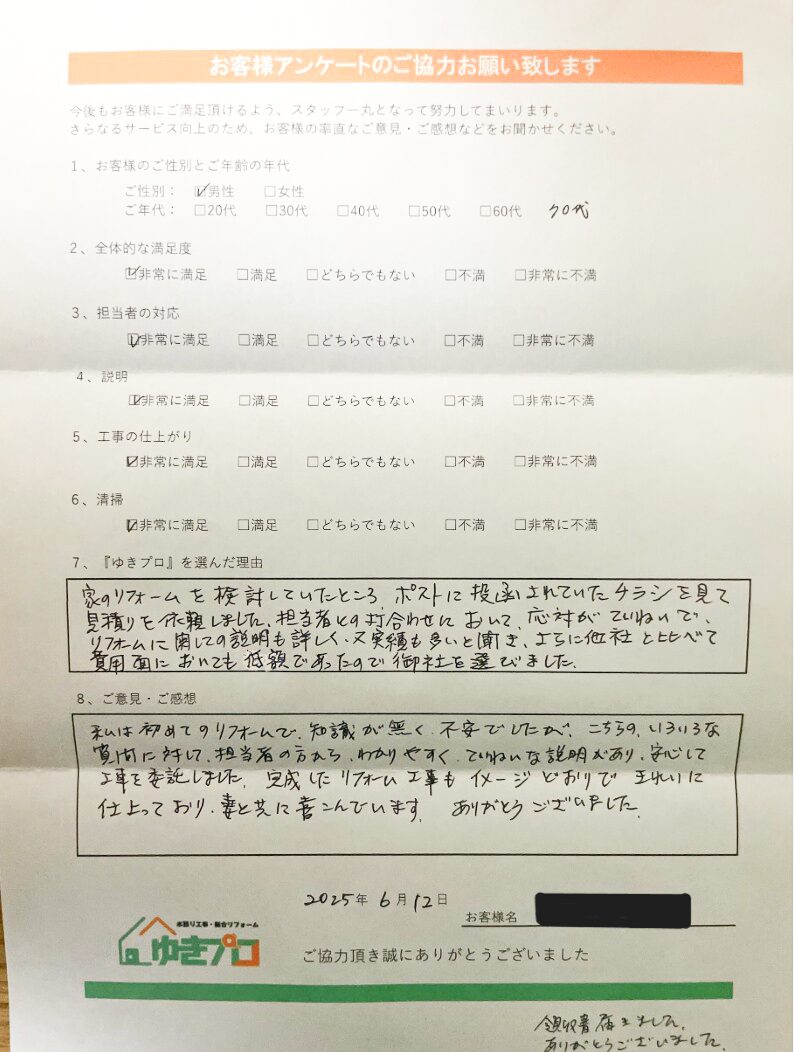 お客様アンケートのご協力お願い致します
今後もお客様にご満足頂けるよう、スタッフ一丸となって努力してまいります。
さらなるサービス向上のため、お客様の率直なご意見・ご感想などをお聞かせください。
1、お客様のご性別とご年齢の年代
ご性別： ☑男性 □女性
ご年代： □20代 □30代 □40代 □50代 □60代 70代
2、全体的な満足度
☑非常に満足 □満足 □どちらでもない □不満 □非常に不満
3、担当者の対応
☑非常に満足 □満足 □どちらでもない □不満 □非常に不満
4、説明
☑非常に満足 □満足 □どちらでもない □不満 □非常に不満
5、工事の仕上がり
☑非常に満足 □満足 □どちらでもない □不満 □非常に不満
6、清掃
☑非常に満足 □満足 □どちらでもない □不満 □非常に不満
7、『ゆきプロ』を選んだ理由
家のリフォームを検討していたところ、ポストに投函されていたチラシを見て
見積りを依頼しました。担当者との打合わせにおいて、応対がていねいで、
リフォームに関しての説明も詳しく、又実績も多いと聞き、さらに他社と比べて
費用面においても低額であったので御社を選びました。
8、ご意見・ご感想
私は初めてのリフォームで、知識が無く、不安でしたが、こちらの、いろいろな
質問に対して、担当者の方から、わかりやすく、ていねいな説明があり、安心して
工事を委託しました。完成したリフォーム工事もイメージどおりで きれいに
仕上っており、妻と共に喜こんでいます。 ありがとうございました。
2025年 6月12日
お客様名
水廻り工事・総合リフォーム
ゆきプロ
ご協力頂き誠にありがとうございました
領収書届きました。
ありがとうございました。